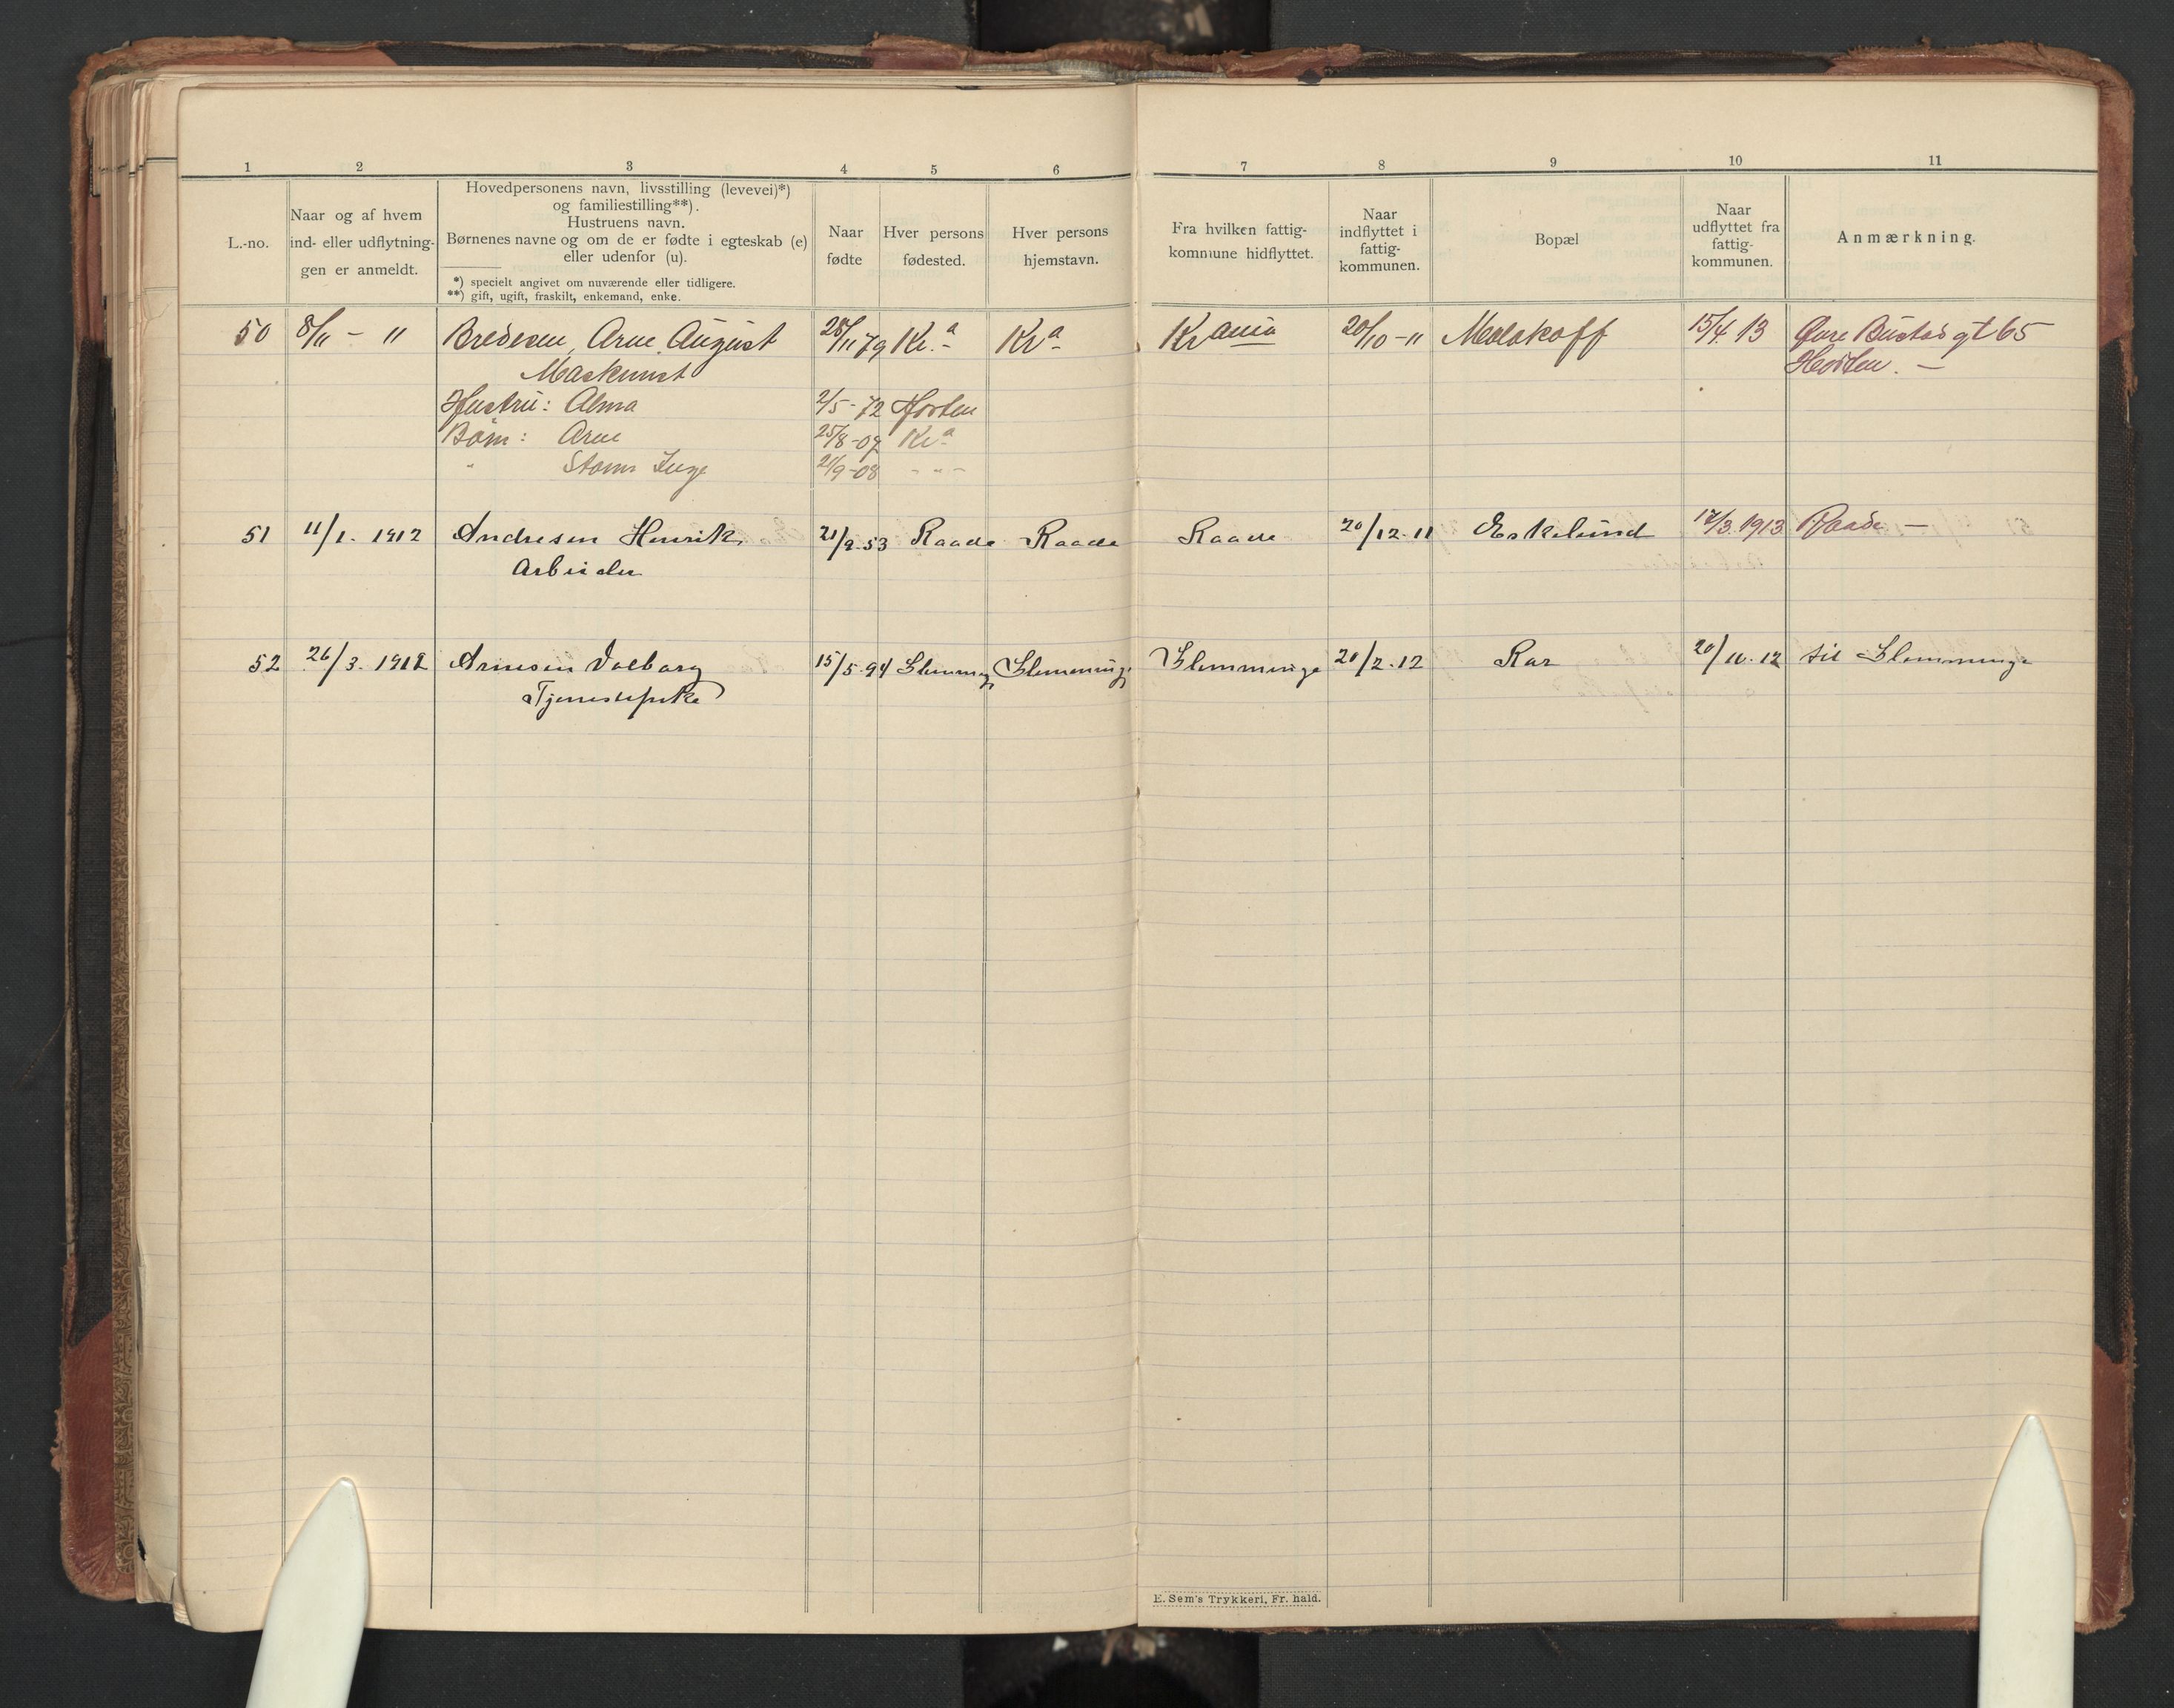 1 2 3 4 5 6 7 8 9 10 11
L.-no.
Naar og af hvem
ind- eller udflytnin-
gen er anmeldt.
Hovedpersonens navn, livsstilling (levevei)*)
og familiestilling**).
Hustruens navn.
Børnenes navne og om de er fødte i egteskab (e)
eller udenfor (u).
*) specielt angivet om nuværende eller tidligere.
**) gift, ugift, fraskilt, enkemand, enke.
Naar
fødte
Hver persons
fødested.
Hver persons
hjemstavn.
Fra hvilken fattig-
kommune hidflyttet.
Naar
indflyttet i
fattig-
kommunen.
Bopæl
Naar
udflyttet fra
fattig-
kommunen.
Anmærkning.
50 8/11 - 11 Bredesen, Arne August 28/11 79 Kr.a Kra Krania 20/10-11 Malakoff 15/4 13 Øvre Bustad gt 65
Maskinist Horten. —
Hustru: Alma 2/5-72 Horten
Børn: Arne 25/8-07 Kra
" Inge 21/9-08 - " -
51 11/1. 1912 Andresen Henrik, 21/9.53 Raade Raade Raade 20/12.11 Eskelund 17/3.1913 Raade —
Arbeider
52 26/3. 1912 Arnesen Valborg 15/5.94 Glemminge Glemminge Glemminge 20/2.12 Rør 20/10.12 til Glemminge
Tjenestepike
E. Sem's Trykkeri, Fr.hald.